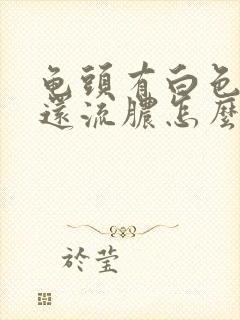 龟頭有白色
還流膿怎麼
於莹